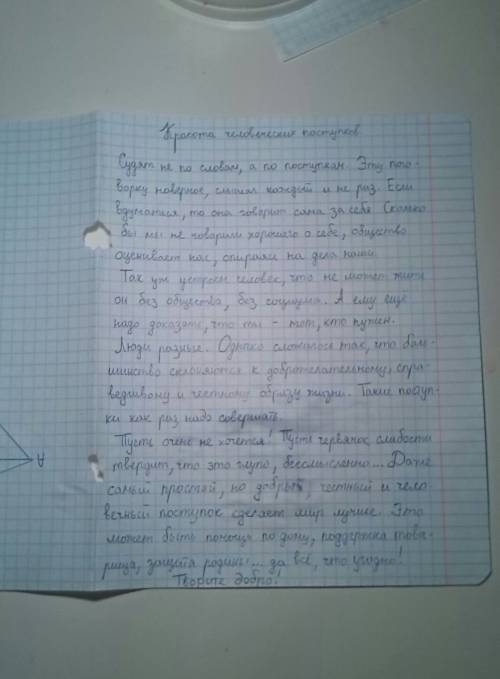 Красота человеческих поступков.
Судят не по словам, а по поступкам. Эту пого-
ворку наверное, слышал каждый и не раз. Если
вдуматься, то она говорит сама за себя. Сколько
бы мы не говорили хорошего о себе, общество
оценивает нас, опираясь на дела наши.
Так уж устроен человек, что не может жить
он без общества, без социума. А ему ещё
надо доказать, что ты - тот, кто нужен.
Люди разные. Однако сложилось так, что боль-
шинство склоняются к доброжелательному, спра-
ведливому и честному образу жизни. Такие поступ-
ки как раз надо совершать.
Пусть очень не хочется! Пусть червячок слабости
твердит, что это глупо, бессмысленно... Даже
самый простой, но добрый, честный и чело-
вечный поступок сделает мир лучше. Это
может быть помощь по дому, поддержка това-
рища, защита родины... да всё, что угодно!
Творите добро!
A